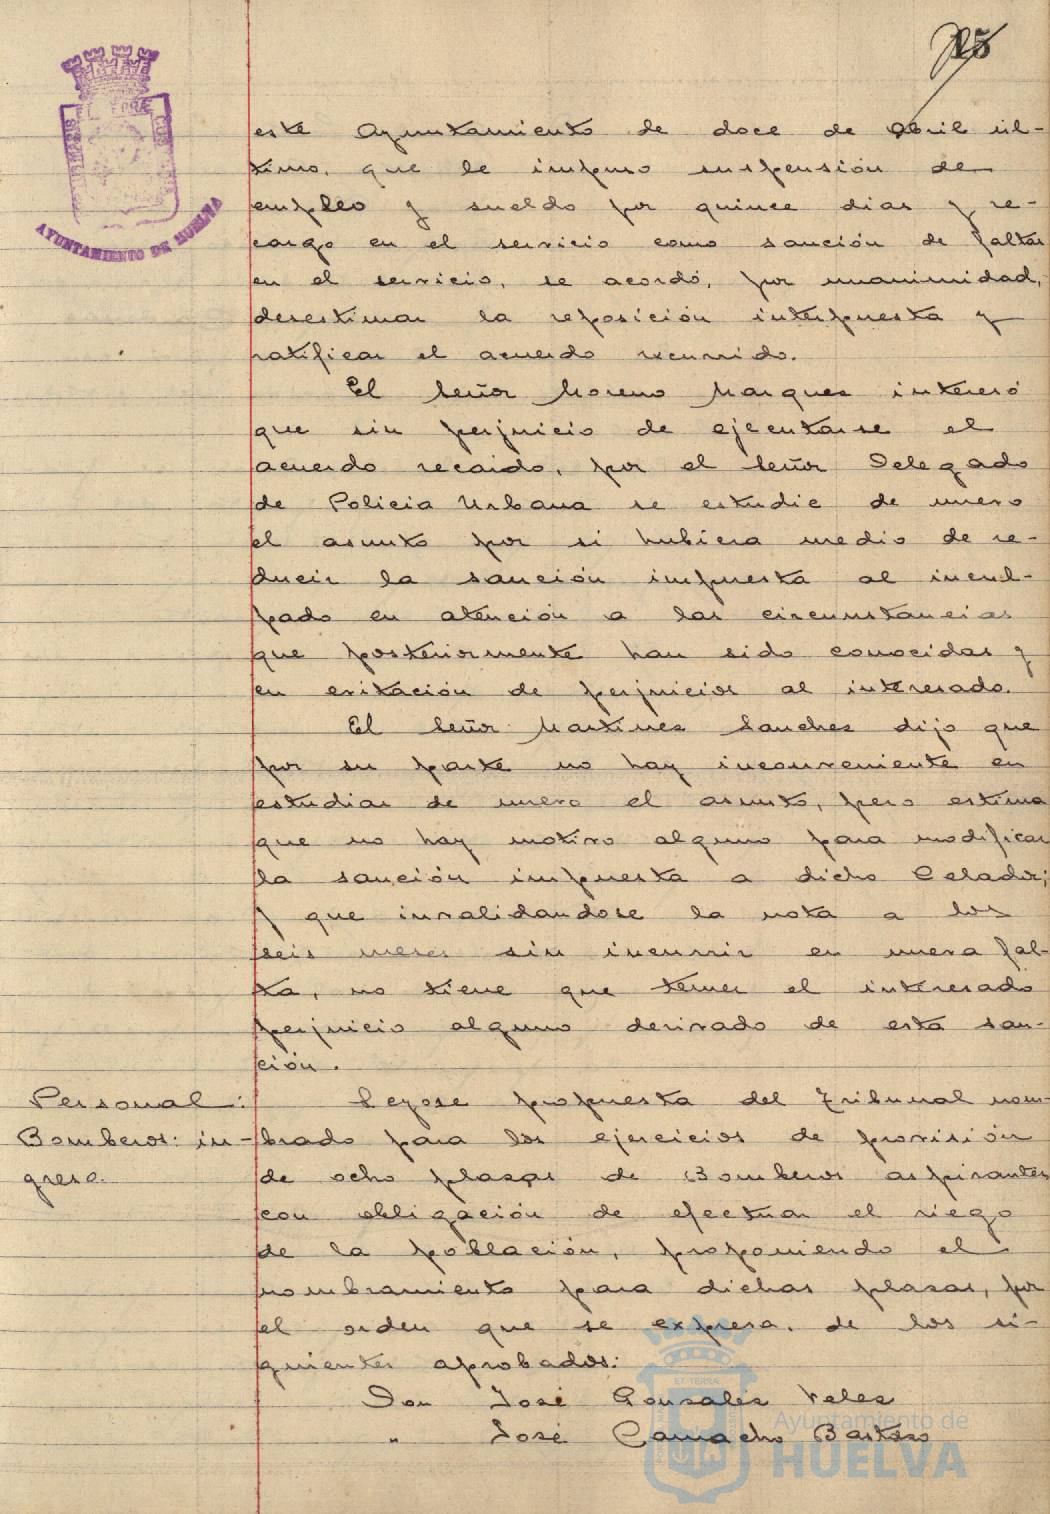 este Ayuntamiento de doce de Abril úl-
timo, que le impuso suspensión de
empleo y sueldo por quince dias y re-
cargo en el servicio como sanción de faltas
en el servicio, se acordó, por unanimidad,
desestimar la reposición interpuesta y
ratificar el acuerdo recurrido.
El Señor Moreno Marques interesó
que sin perjuicio de ejecutarse el
acuerdo recaido, por el Señor Delegado
de Policia Urbana se estudie de nuevo
el asunto por si hubiera medio de re-
ducir la sanción impuesta al incul-
pado en atención a las circunstancias
que posteriormente han sido conocidas y
en evitación de perjuicios al interesado.
El Señor Martines Sanches dijo que
por su parte no hay inconveniente en
estudiar de nuevo el asunto, pero estima
que no hay motivo alguno para modificar
la sanción impuesta a dicho Celador;
y que invalidandose la nota a los
seis meses sin incurrir en nueva fal-
ta, no tiene que temer el interesado
perjuicio alguno derivado de esta san-
ción.
Personal:
Bomberos: in-
greso.
Leyose propuesta del Tribunal nom-
brado para los ejercicios de provisión
de ocho plasas de Bomberos aspirantes
con obligación de efectuar el riego
de la población, proponiendo el
nombramiento para dichas plasas, por
el orden que se expresa, de los si-
guientes aprobados:
Don José Gonsales Veles
" José Camacho Bastoso
AYUNTAMIENTO DE HUELVA
ET TERRA
Ayuntamiento de
HUELVA